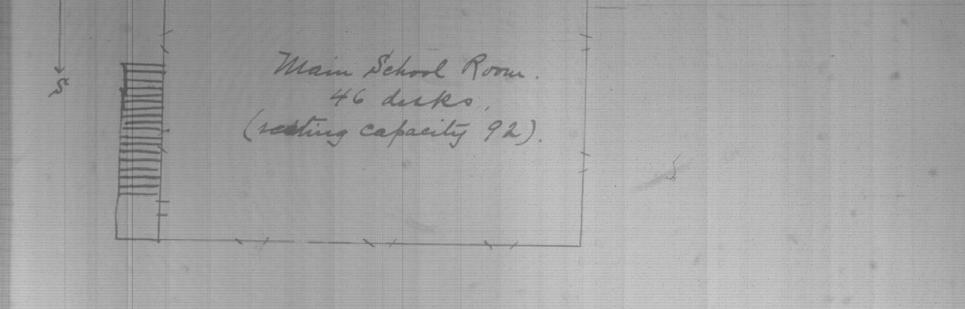 Main School Room.
46 desks,
(seating capacity 92).
S